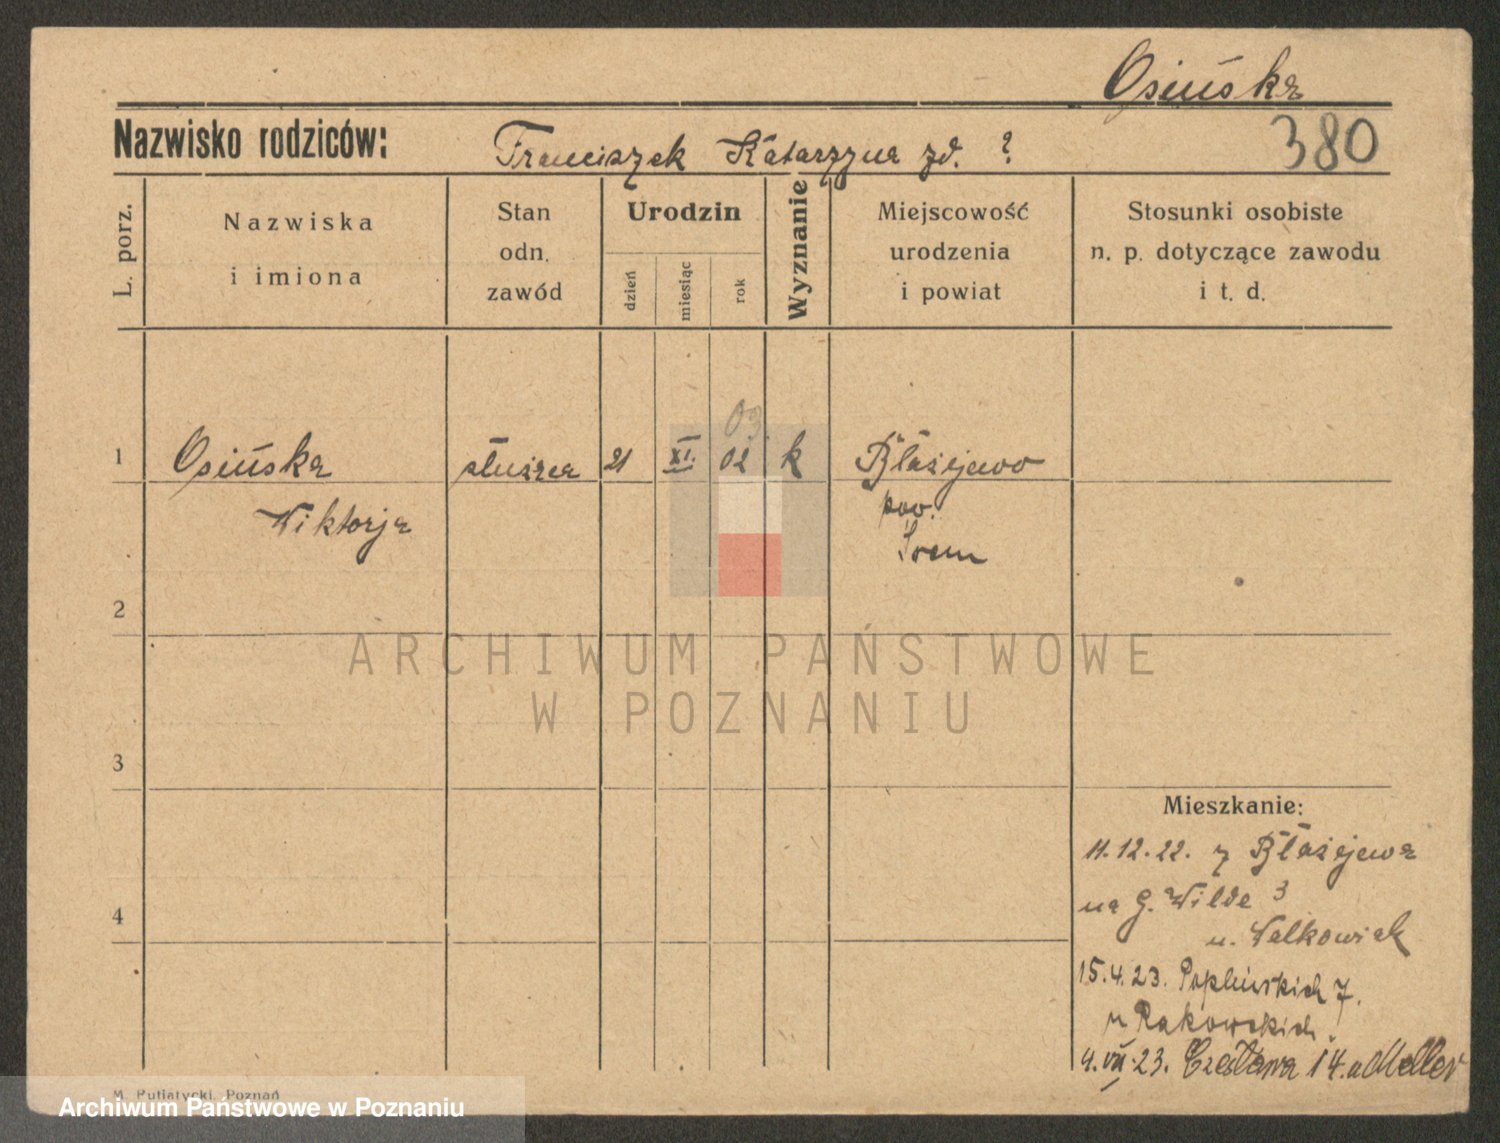 Osińska
Nazwisko rodziców: Franciszek Katarzyna zd. ?
380
L. porz.
Nazwiska
i imiona
Stan
odn.
zawód
Urodzin
dzień
miesiąc
rok
Wyznanie
Miejscowość
urodzenia
i powiat
Stosunki osobiste
n. p. dotyczące zawodu
i t. d.
03
1 Osińska służąca 21 XI. 02 k Błażejewo
Wiktorja pow.
Śrem
2
ARCHIWUM PAŃSTWOWE
W POZNANIU
3
Mieszkanie:
11.12.22. z Błażejewa
na G. Wilde 3
u. Walkowiak
4
15.4.23. Poplińskich 7.
u Rakowskich.
4.VII.23. Czesława 14. a Meller
M. Putiatycki, Poznań
Archiwum Państwowe w Poznaniu